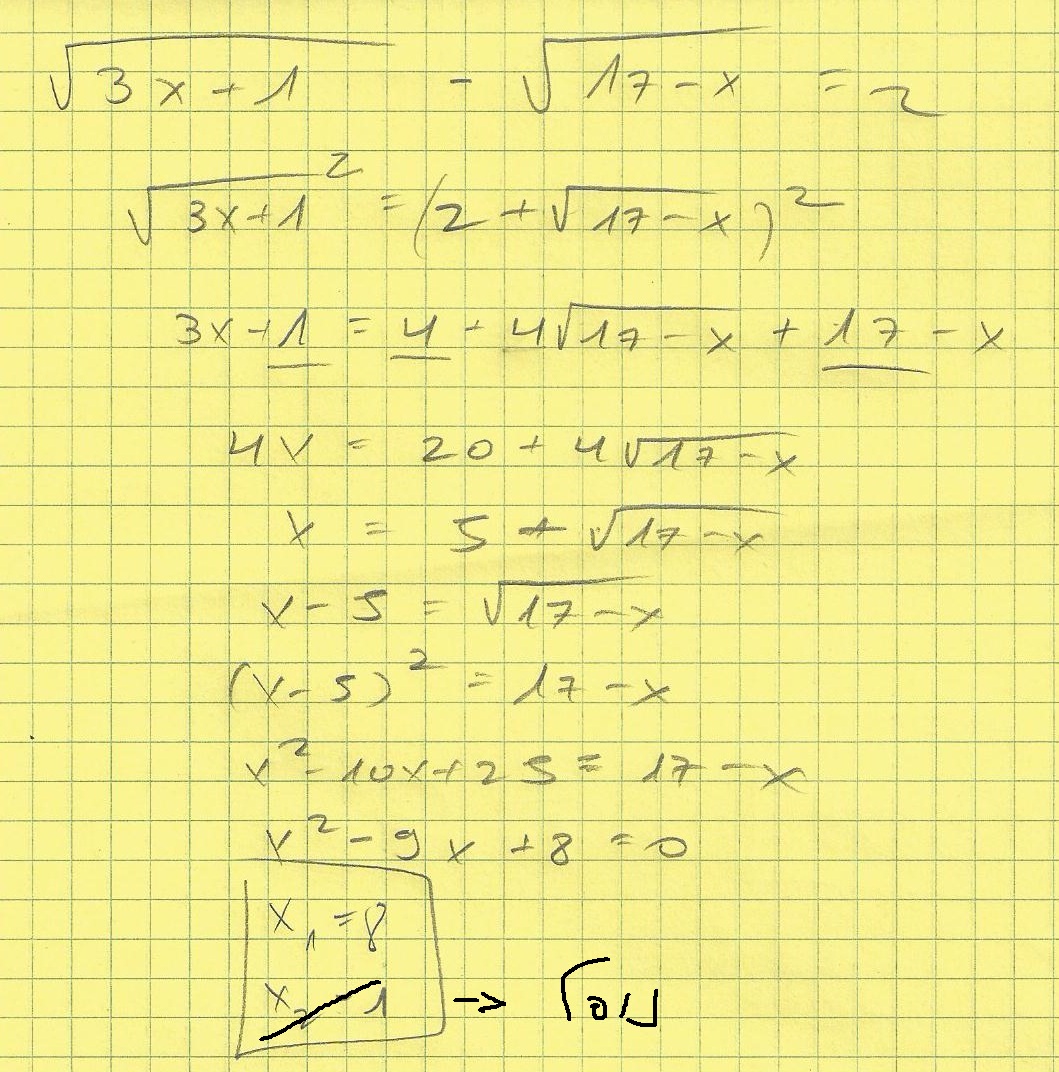 √3x+1 - √17-x = 2
√3x+1² = (2 + √17-x)²
3x+1 = 4 + 4√17-x + 17 - x
4x = 20 + 4√17-x
x = 5 + √17-x
x - 5 = √17-x
(x-5)² = 17 - x
x² - 10x + 25 = 17 - x
x² - 9x + 8 = 0
x₁ = 8
x₂ = 1 →